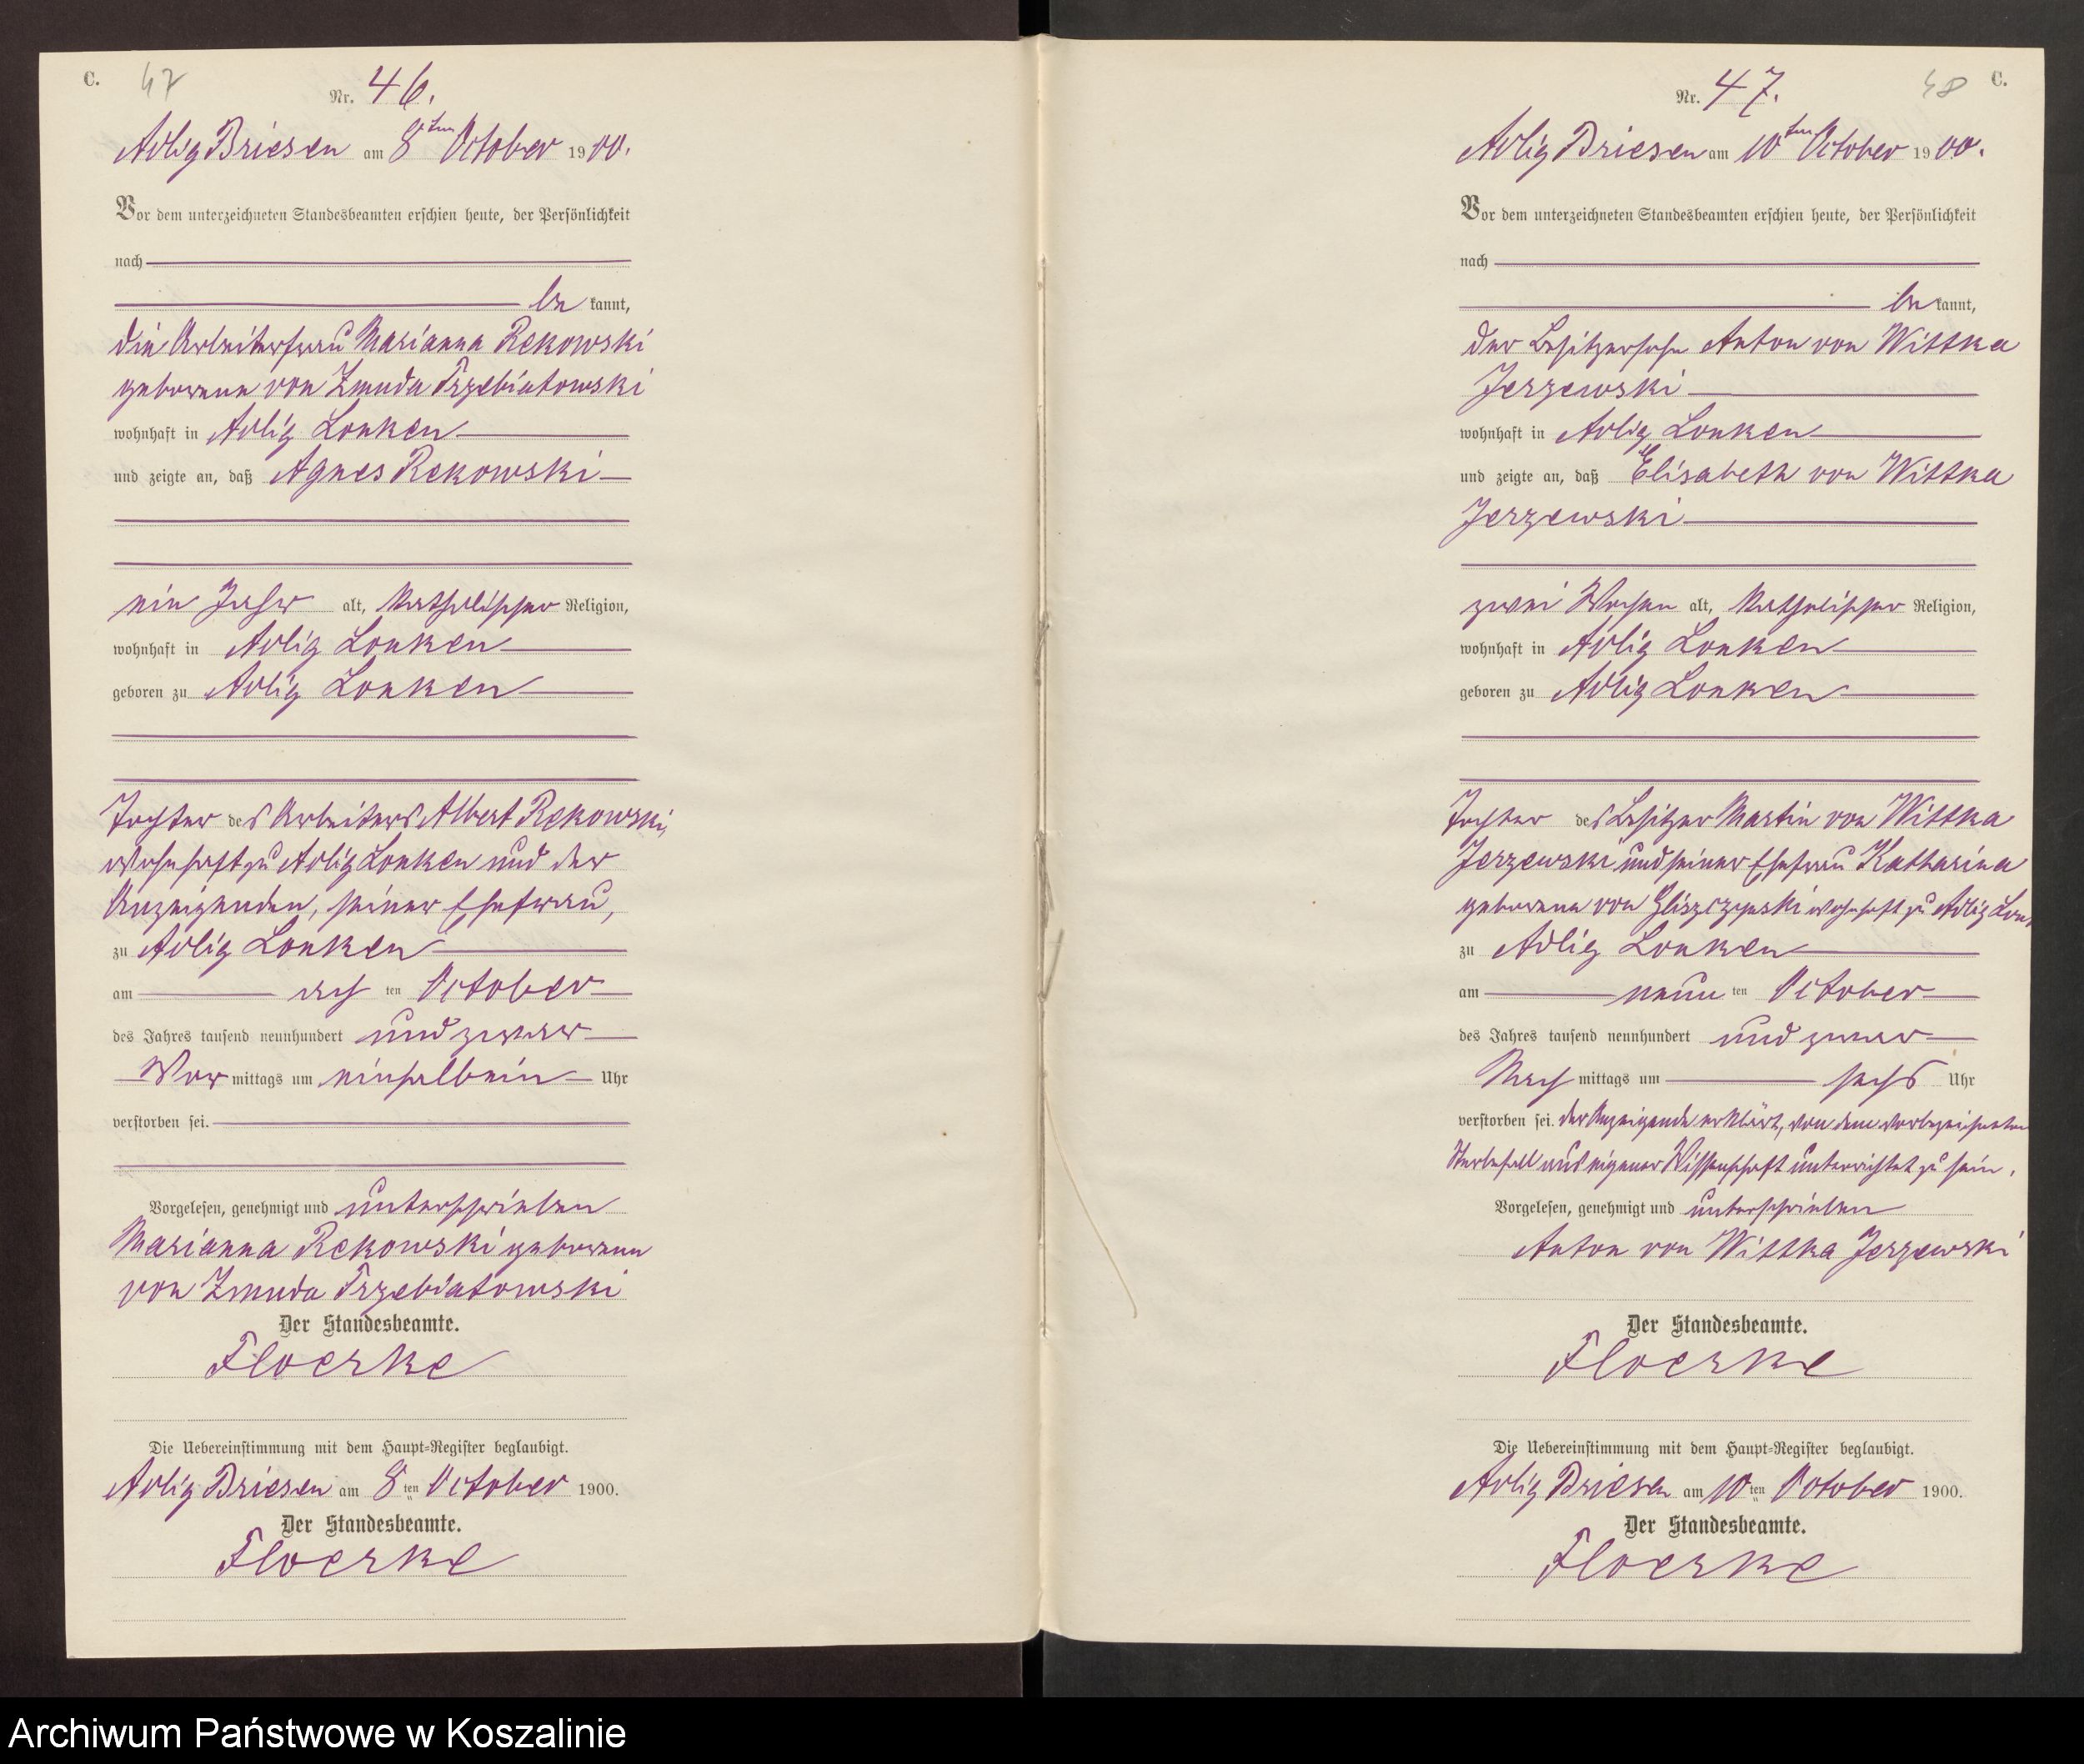 C. 47
Nr. 46.
Adlig Briesen am 8ten October 1900.
Vor dem unterzeichneten Standesbeamten erschien heute, der Persönlichkeit
nach
be kannt,
die Arbeiterfrau Marianna Rekowski
geborene von Zmuda Trzebiatowski
wohnhaft in Adlig Lonken
und zeigte an, daß Agnes Rekowski
ein Jahr alt, katholischer Religion,
wohnhaft in Adlig Lonken
geboren zu Adlig Lonken
Tochter des Arbeiters Albert Rekowski,
wohnhaft zu Adlig Lonken und der
Anzeigenden, seiner Ehefrau,
zu Adlig Lonken
am ach ten October
des Jahres tausend neunhundert und zwar
Vor mittags um einhalbein Uhr
verstorben sei.
Vorgelesen, genehmigt und unterschrieben
Marianna Rekowski geborene
von Zmuda Trzebiatowski
Der Standesbeamte.
Floerke
Die Uebereinstimmung mit dem Haupt-Register beglaubigt.
Adlig Briesen am 8 ten October 1900.
Der Standesbeamte.
Floerke
48 C.
Nr. 47.
Adlig Briesen am 10ten October 1900.
Vor dem unterzeichneten Standesbeamten erschien heute, der Persönlichkeit
nach
be kannt,
der Besitzersohn Anton von Wittka
Jerzewski
wohnhaft in Adlig Lonken
und zeigte an, daß Elisabeth von Wittka
Jerzewski
zwei Wochen alt, katholischer Religion,
wohnhaft in Adlig Lonken
geboren zu Adlig Lonken
Tochter des Besitzer Martin von Wittka
Jerzewski und seiner Ehefrau Katharina
geborene von Gliszczynski wohnhaft zu Adlig Lon,
zu Adlig Lonken
am neun ten October
des Jahres tausend neunhundert und zwar
Nach mittags um sechs Uhr
verstorben sei. Der Anzeigende erklärt, von dem vorbezeichneten
Sterbefall aus eigener Wissenschaft unterrichtet zu sein.
Vorgelesen, genehmigt und unterschrieben
Anton von Wittka Jerzewski
Der Standesbeamte.
Floerke
Die Uebereinstimmung mit dem Haupt-Register beglaubigt.
Adlig Briesen am 10 ten October 1900.
Der Standesbeamte.
Floerke
Archiwum Państwowe w Koszalinie